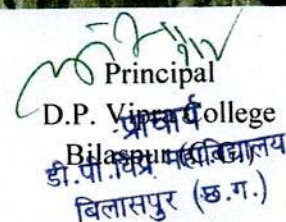 Principal
D.P. Vipra College
प्राचार्य
Bilaspur (C.G.)
डी.पी.विप्र महाविद्यालय
बिलासपुर (छ.ग.)